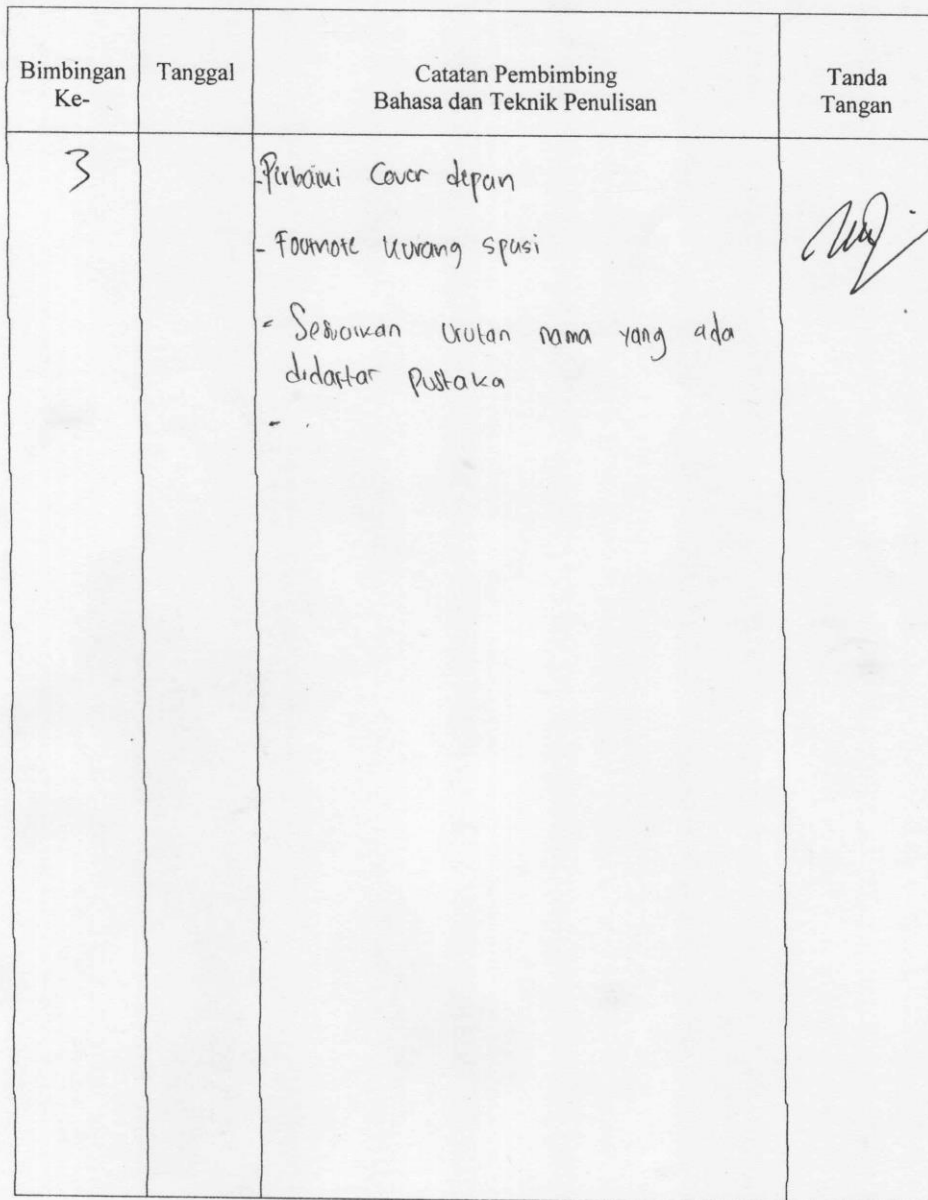 Bimbingan Ke-
Tanggal
Catatan Pembimbing
Bahasa dan Teknik Penulisan
Tanda Tangan
3
- Perbaiki Cover depan
- Footnote kurang spasi
- Sesuaikan urutan nama yang ada
didaftar Pustaka
-